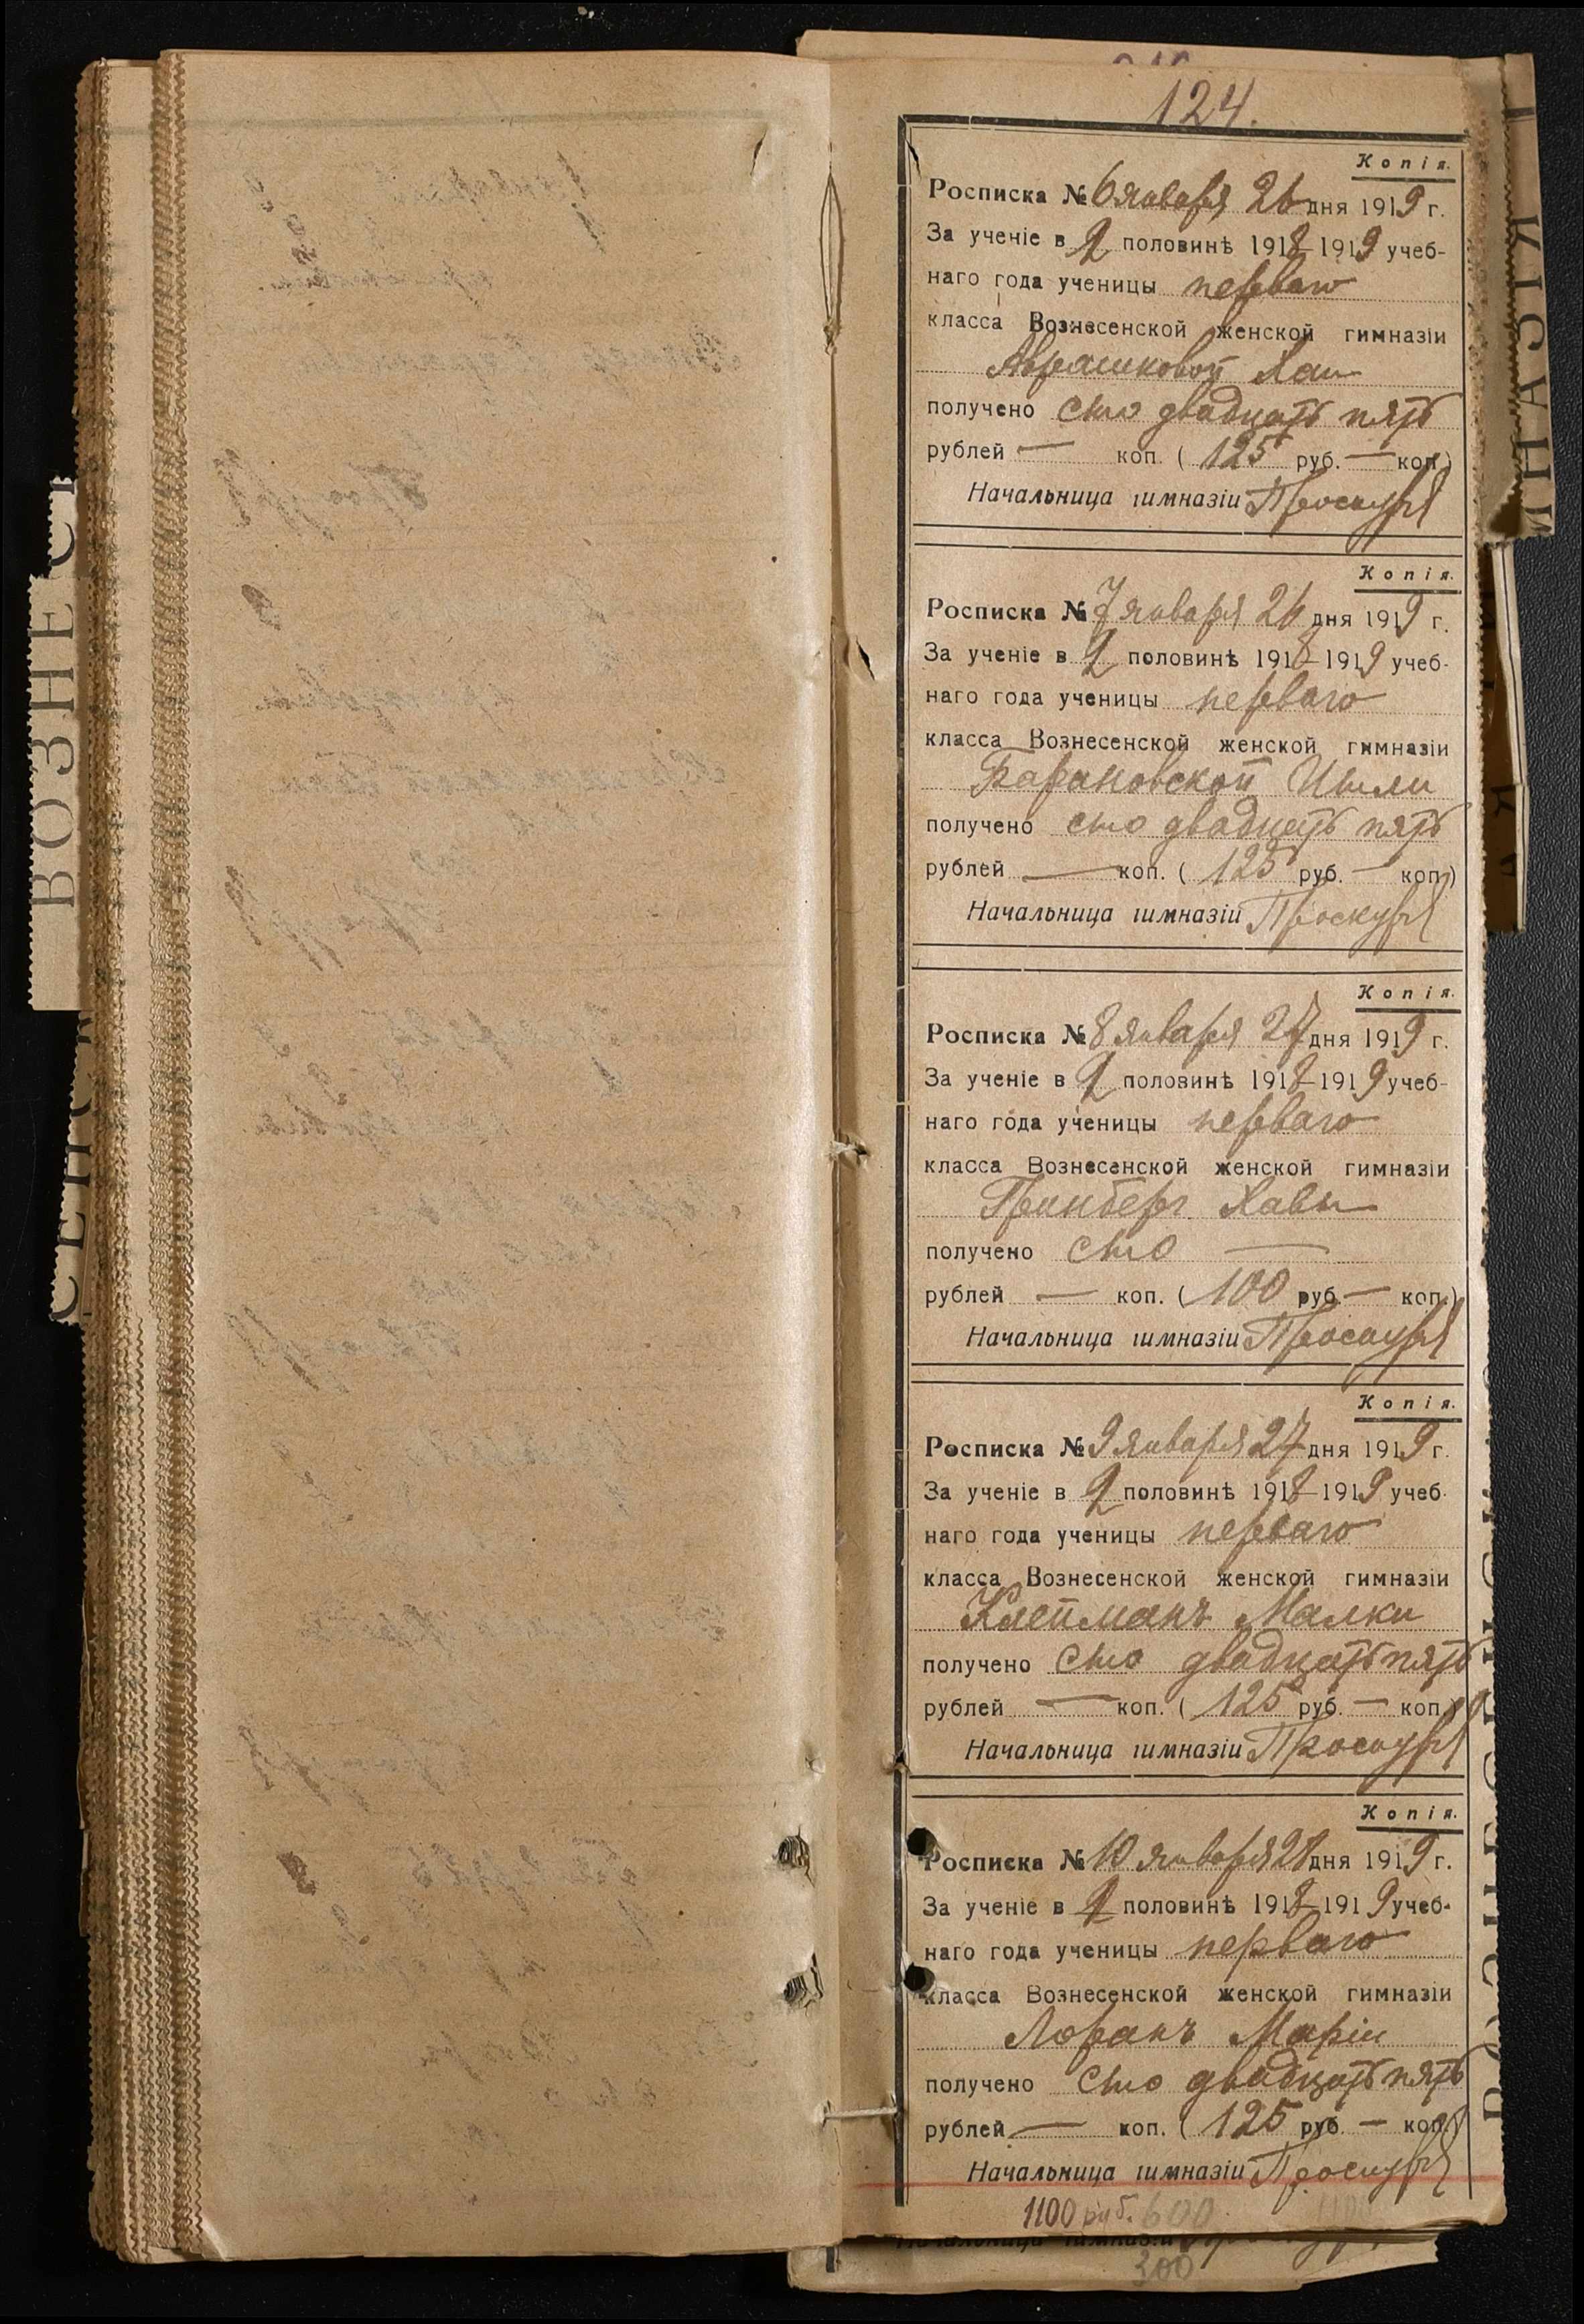 124.
Копія.
Росписка № 6 января 26 дня 1919 г.
За ученіе в 2 половинѣ 1918-1919 учеб-
наго года ученицы перваго
класса Вознесенской женской гимназіи
Аврашковой Хаи
получено сто двадцать пять
рублей — коп. ( 125 руб. — коп.)
Начальница гимназіи Проскура
Копія.
Росписка № 7 января 26 дня 1919 г.
За ученіе в 2 половинѣ 1918-1919 учеб-
наго года ученицы перваго
класса Вознесенской женской гимназіи
Барановской
получено сто двадцать пять
рублей — коп. ( 125 руб. — коп.)
Начальница гимназіи Проскура
Копія.
Росписка № 8 января 27 дня 1919 г.
За ученіе в 2 половинѣ 1918-1919 учеб-
наго года ученицы перваго
класса Вознесенской женской гимназіи
Гринберг Хавы
получено сто —
рублей — коп. ( 100 руб. — коп.)
Начальница гимназіи Проскура
Копія.
Росписка № 9 января 27 дня 1919 г.
За ученіе в 2 половинѣ 1918-1919 учеб-
наго года ученицы перваго
класса Вознесенской женской гимназіи
Клейманъ Малки
получено сто двадцать пять
рублей — коп. ( 125 руб. — коп.)
Начальница гимназіи Проскура
Копія.
Росписка № 10 января 28 дня 1919 г.
За ученіе в 2 половинѣ 1918-1919 учеб-
наго года ученицы перваго
класса Вознесенской женской гимназіи
Лоранъ Маріи
получено сто двадцать пять
рублей — коп. ( 125 руб. — коп.)
Начальница гимназіи Проскура
1100 руб. 600
Начальница гимназіи
300
ВОЗНЕС